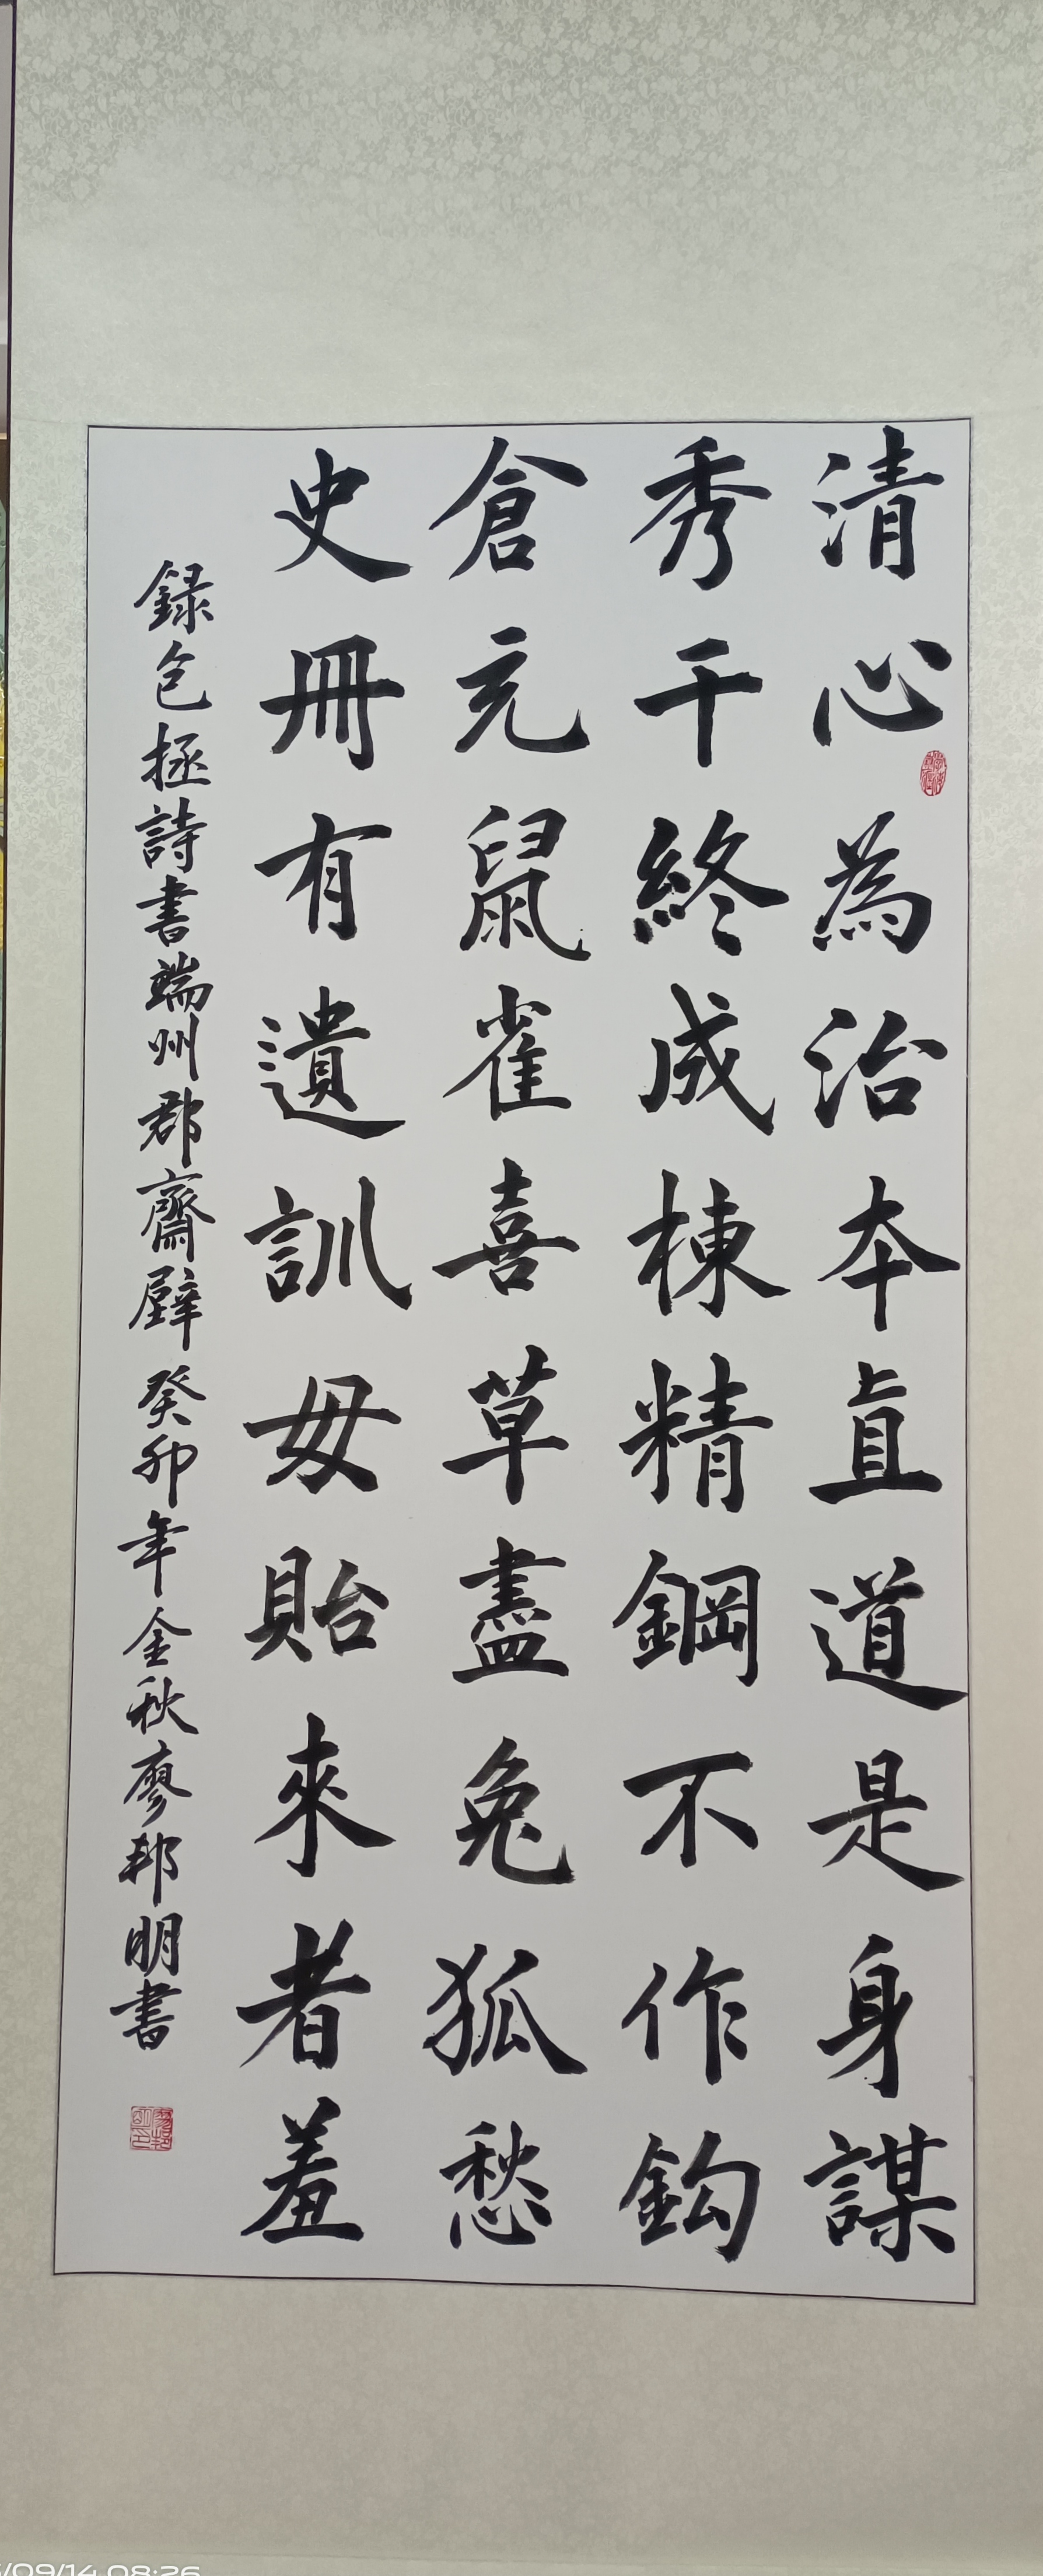 清心為治本直道是身謀
秀干終成棟精鋼不作鈎
倉充鼠雀喜草盡兔狐愁
史冊有遺訓毋貽來者羞
録包拯詩書端州郡齋壁癸卯年金秋廖邦明書
/09/14 08:26